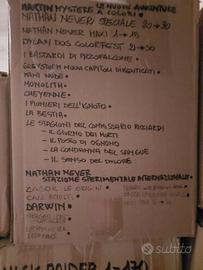 MARTIN MYSTERE LE NUOVE AVVENTURE
A COLORI
NATHAN NEVER SPECIALE 20→30
NATHAN NEVER MAXI 1→15
DYLAN DOG COLORFEST 21→30
I BASTARDI DI PIZZOFALCONE
GREYSTORM NUOVI CAPITOLI DIMENTICATI
MANI NUDE
MONOLITH
CHEYENNE
I PIONIERI DELL'IGNOTO
LA BESTIA
LE STAGIONI DEL COMMISSARIO RICCIARDI
- IL GIORNO DEI MORTI
- IL POSTO DI OGNUNO
- LA CONDANNA DEL SANGUE
- IL SENSO DEL DOLORE
NATHAN NEVER
STAZIONE SPERIMENTALE INTERNAZIONALE
ZAGOR LE ORIGINI
CANI SCIOLTI
DARWIN
subito